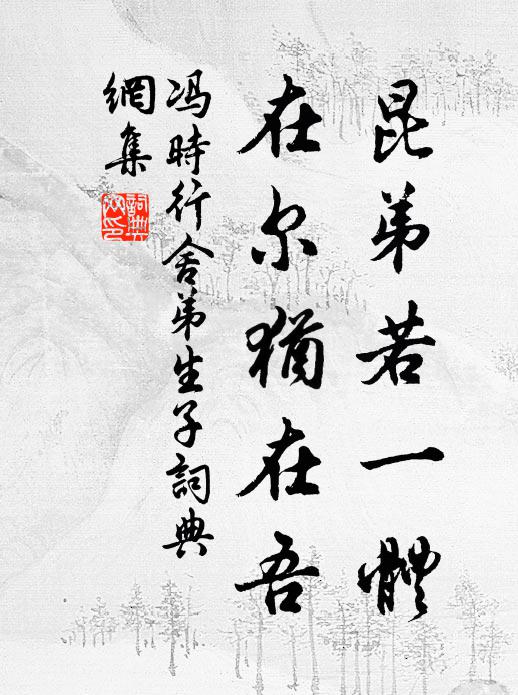 昆弟若一體
在尔猶在吾
冯時行舍弟生子詞典
網集